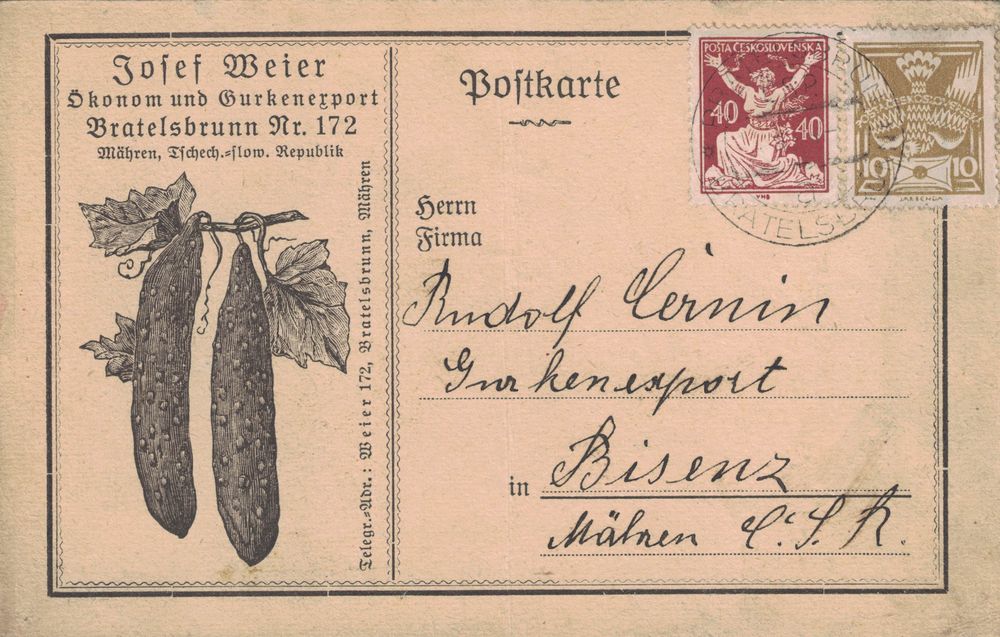 Josef Weier
Ökonom und Gurkenexport
Bratelsbrunn Nr. 172
Mähren, Tschech.-slow. Republik
Telegr.-Adr.: Weier 172, Bratelsbrunn, Mähren
Postkarte
POŠTA ČESKOSLOVENSKÁ
40 40
VHB
10 10
JAR BENDA
BRATELSBRU
Herrn
Firma
Rudolf Černin
Gurkenexport
in Bisenz
Mähren Č.S.R.